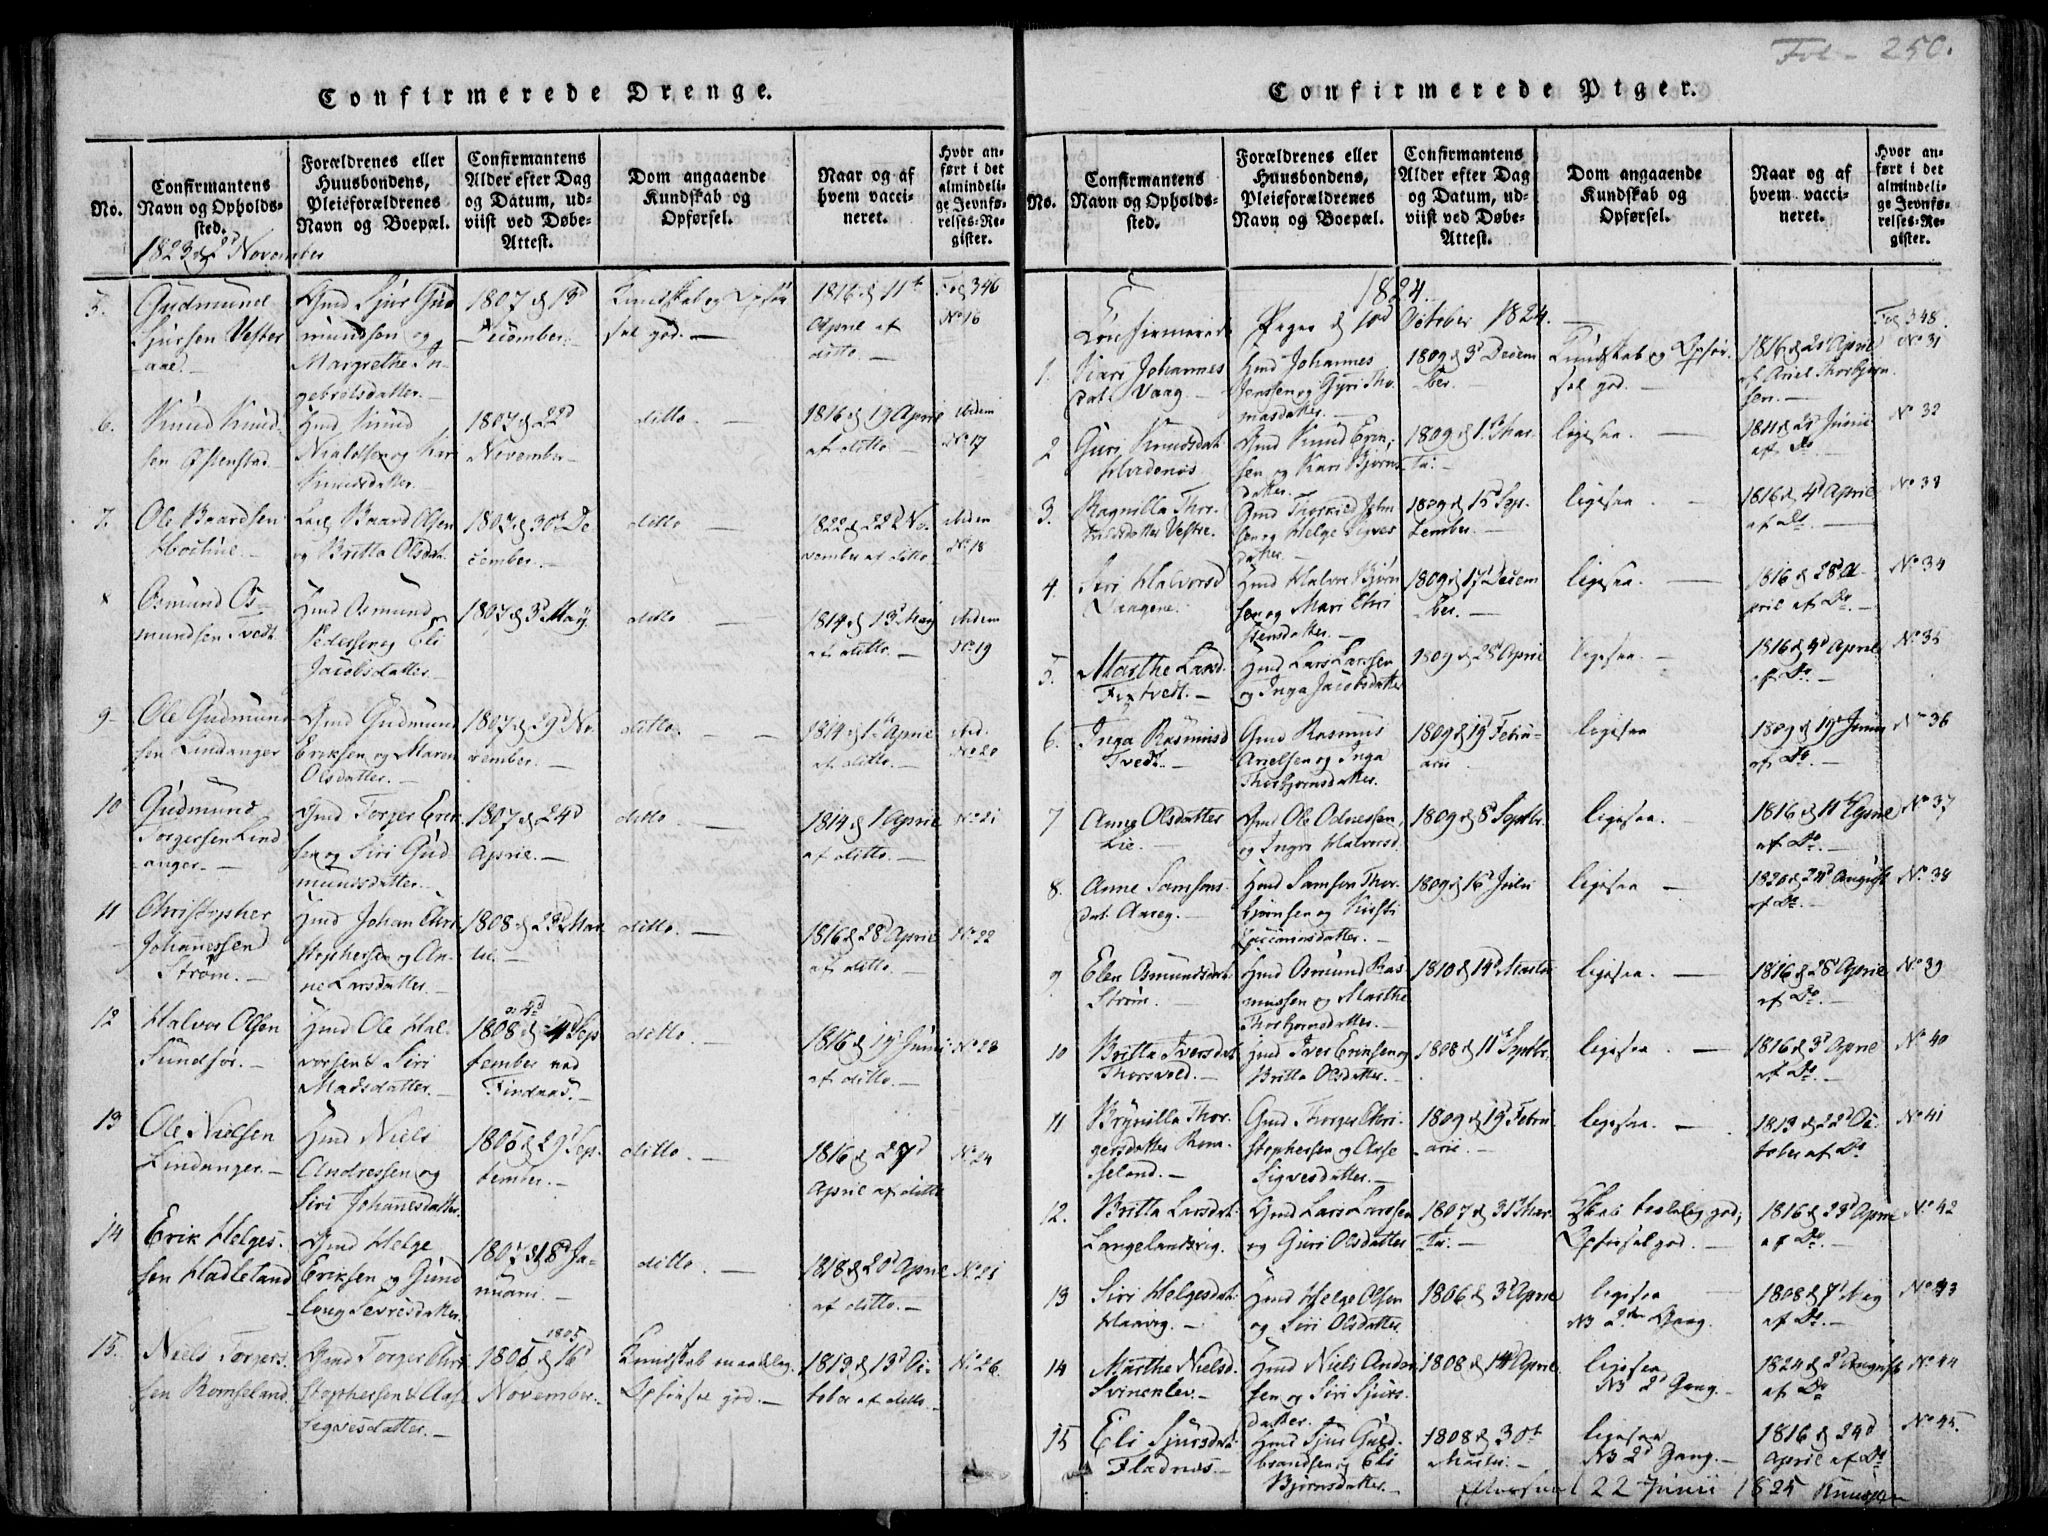 Confirmerede Drenge.
No.
Confirmantens
Navn og Opholds-
sted.
Forældrenes eller
Huusbondens,
Pleieforældrenes
Navn og Boepæl.
Confirmantens
Alder efter Dag
og Datum, ud-
viist ved Døbe-
Attest.
Dom angaaende
Kundskab og
Opførsel.
Naar og af
hvem vacci-
neret.
Hvor an-
ført i det
almindeli-
ge Jevnfø-
relses-Re-
gister.
1823 d 2d November
5.
Gudmund
Sjursen Vester
aae.
Gmd Sjur Gud
mundsen og
Margrethe In
gebrigtsdatter.
1807 d 13d
December.
Kundskab og Opfør
sel god.
1816 d 11te
April af
ditto.
Fol 346
No 16
6.
Knud Knud-
sen
Gmd Knud
og Kari
Knudsdatter.
1807 d 22d
November
ditto.
1816 d 19 April
af ditto.
ibidem
No 17
7.
Ole Baardsen
Baard Olsen
og Britta Olsdat.
1807 d 30te De
cember.
ditto
1822 d 22d No
vember af ditto
ibidem
No 18
Osmund Os-
mundsen Tvedt
Gmd Osmund
Pedersen og Eli
Jacobsdatter.
1807 d 3d May.
ditto
1814 d 13d May
af ditto.
ibidem
No 19
9
Ole Gudmund
sen Lindanger
Gmd Gudmund
Eriksen og Maren
Olsdatter.
1807 d 29d No
vember.
ditto.
1814 d 1te April
af ditto.
ibid.
No 20
10
Gudmund
Torgersen Lind
anger.
Gmd Torger Erik
sen og Siri Gud
mundsdatter.
1807 d 24d
April.
ditto.
1814 d 1 April
af ditto.
No 21
11
Christopher
Johannessen
Strøm.
Gmd Johan Chri
stophersen og An-
ne Larsdatter.
1808 d 23d Mar
tii.
ditto.
1816 d 28d April
af ditto.
No 22
12
Halvor Olsen
Sundfør.
Gmd Ole Hal-
vorsen & Siri
Madsdatter.
1808 d 4d Sep
tember ved
Findaas.
ditto.
1816 d 19d Junii
af ditto.
No 23
13
Ole Nielsen
Lindanger.
Gmd Niels
Andressen og
Siri Johannesdatter.
1806 d 29d Sep
tember.
ditto.
1816 d 27d
April af ditto
No 24
14
Erik Helges-
sen Hadleland
Gmd Helge
Eriksen og Gund
laug Sevresdatter
1807 d 18d Ja-
nuarii.
ditto.
1818 d 20d April
af ditto.
No 25
15.
Niels Torgers-
sen Romseland
Gmd Torger Chri
stophersen & Aase
Sigvesdatter.
1805
1806 d 16d
November.
Kundskab maadelig.
Opførsel god.
1813 d 13d Oc-
tober af ditto.
No 26.
Fol - 250.
Confirmerede Piger.
No.
Confirmantens
Navn og Opholds-
sted.
Forældrenes eller
Huusbondens,
Pleieforældrenes
Navn og Boepæl.
Confirmantens
Alder efter Dag
og Datum, ud-
viist ved Døbe-
Attest.
Dom angaaende
Kundskab og
Opførsel.
Naar og af
hvem vacci-
neret.
Hvor an-
ført i det
almindeli-
ge Jevnfø-
relses-Re-
gister.
1824.
Confirmerede Piger d 10d October 1824.
1.
Kari Johannes
dat. Vaag
Gmd Johannes
Jenssen og Gyri Tho
masdatter.
1809 d 3d Decem
ber.
Kundskab og Opfør-
sel god.
1816 d 21 April
af Ariel Thorbjørn
sen.
Fol 348.
No 31
2
Guri Knudsdat.
Gmd Knud Erik-
sen og Kari Bjørns
datter.
1809 d 1te Mar-
tii.
ligesaa.
1811 d 21d Junii
af Do
No 32
3.
Ragnilla Thor-
kildsdatter Vestre.
Gmd Thorkild John
sen og Helge Sigves
datter.
1809 d 15d Sep-
tember.
ligesaa.
1816 d 4d April
af Do.
No 33
4.
Siri Halvorsd
Vaagene.
Gmd Halvor Bjørn
sen og Mari Chri
stensdatter.
1809 d 17d Decem
ber.
ligesaa.
1816 d 28d A-
pril af Do.
No 34
5.
Marthe Larsd.
Fixtvedt.
Gmd Lars Larssen
og Inga Jacobsdatter
1809 d 28d April
ligesaa.
1816 d 4d April
af Do.
No 35
6.
Inga Rasmusd
Tvedt.
Gmd Rasmus
Arielsen og Inga
Thorbjørnsdatter.
1809 d 19d Febru-
arii
ligesaa
1809 d 19d Junii
af Do.
No 36
7
Anne Olsdatter
Lie.
Gmd Ole Odnessen
og Ingri Halvorsd.
1809 d 8d Septbr.
ligesaa.
1816 d 11te April
af Do.
No 37
8.
Anne Samsons-
dat. Aareg.
Gmd Samson Thor-
bjørnsen og Kirsti
1809 d 16d Julii
ligesaa
1820 d 24d August
af Do.
No 38
9
Elen Osmundsdat.
Strøm.
Gmd Osmund Ras
mussen og Marthe
Thorbjørnsdatter.
1810 d 14d Martii
ligesaa.
1816 d 28d April
af Do.
No 39
10
Britta Iversdat.
Thorsvold.
Gmd Iver Eriksen og
Britta Olsdatter.
1808 d 11te Septbr.
ligesaa.
1816 d 3d April
af Do.
No 40
11
Brynilla Thor-
gersdatter Rom-
seland.
Gmd Thorger Chri-
stophersen og Aase
Sigvesdatter.
1809 d 19d Febru
arii.
ligesaa.
1813 d 22d Oc-
tober af Do
No 41
12.
Britta Larsdat.
Langelandsvig.
Gmd Lars Larssen
og Guri Olsdatter
1807 d 31te Mar-
tii.
Kskab taalelig god;
Opførsel god.
1816 d 23d April
af Do.
No 42
13
Siri Helgesdat.
Haavig.
Gmd Helge Olsen
og Siri Olsdatter.
1806 d 3d April
ligesaa
NB 2den Gang.
1808 d 7d Maj
af Do.
No 43
14
Marthe Nielsd.
Svinenlev.
Gmd Niels Andri
sen og Siri Sjurs-
datter.
1808 d 14d April
ligesaa
NB 2d Gang.
1824 d 2d August
af Do
No 44
15
Eli Sjursdat.
Fladnæs.
Gmd Sjur Guld-
brandsen og Eli
Bjørnsdatter.
1808 d 30te
Martii.
ligesaa
NB 2d Gang.
1816 d 24d
April af Do
No 45.
22 Junii 1825